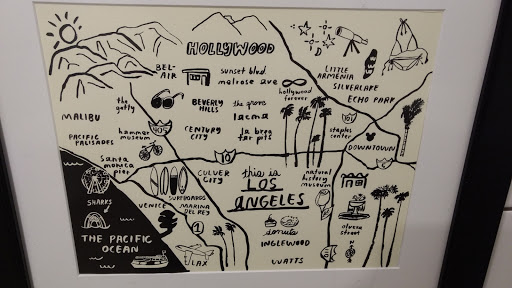 HOLLYWOOD
BEL-
AIR
sunset blvd.
melrose ave
LITTLE
ARMENIA
SILVERLAKE
ECHO PARK
hollywood
forever
the getty
BEVERLY
HILLS
the grove
lacma
MALIBU
405
CENTURY
CITY
la brea
tar pits
staples
center
PACIFIC
PALISADES
hammer
museum
DOWNTOWN
10
santa
monica
pier
CULVER
CITY
this is
LOS
ANGELES
natural
history
museum
SURFBOARDS
SHARKS
VENICE
MARINA
DEL REY
donuts
INGLEWOOD
olvera
street
THE PACIFIC
OCEAN
1
LAX
WATTS
N